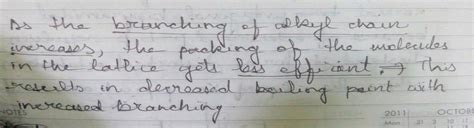 As the branching of alkyl chain
increases, the packing of the molecules
in the lattice gets less efficient. → This
results in decreased boiling point with
increased branching
NOTES
2011 OCTOB
Mon 31 3 10 17